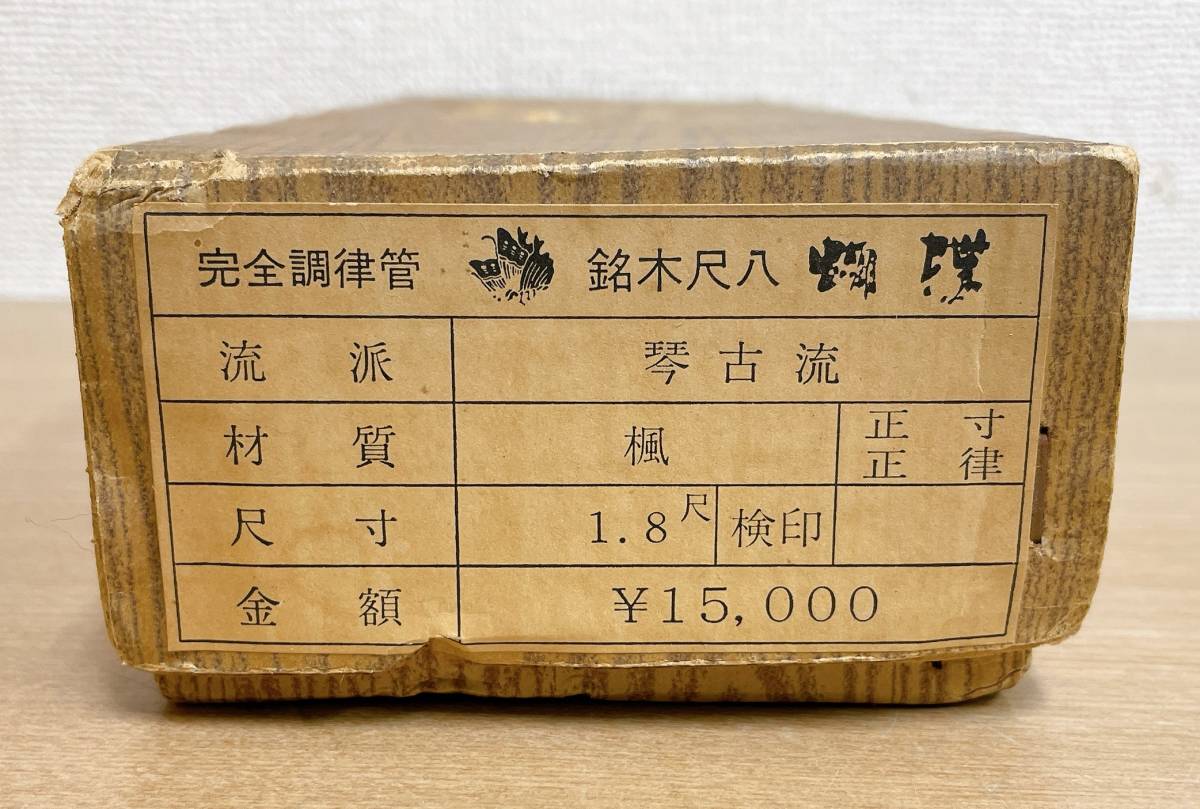 完全調律管 銘木尺八 胡蝶
流派 琴古流
材質 楓 正寸
正律
尺寸 1.8尺 検印
金額 ¥15,000